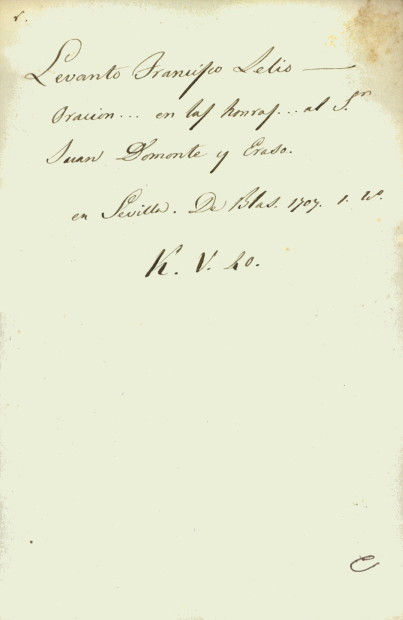 Levanto Francisco Lelio —
Oracion... en las honras... al S.r
Juan Domonte y Eraso.
en Sevilla. De Blas. 1707. 1. v.
K. V. 40.